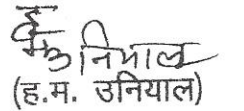 ह म उनियाल
(ह.म. उनियाल)